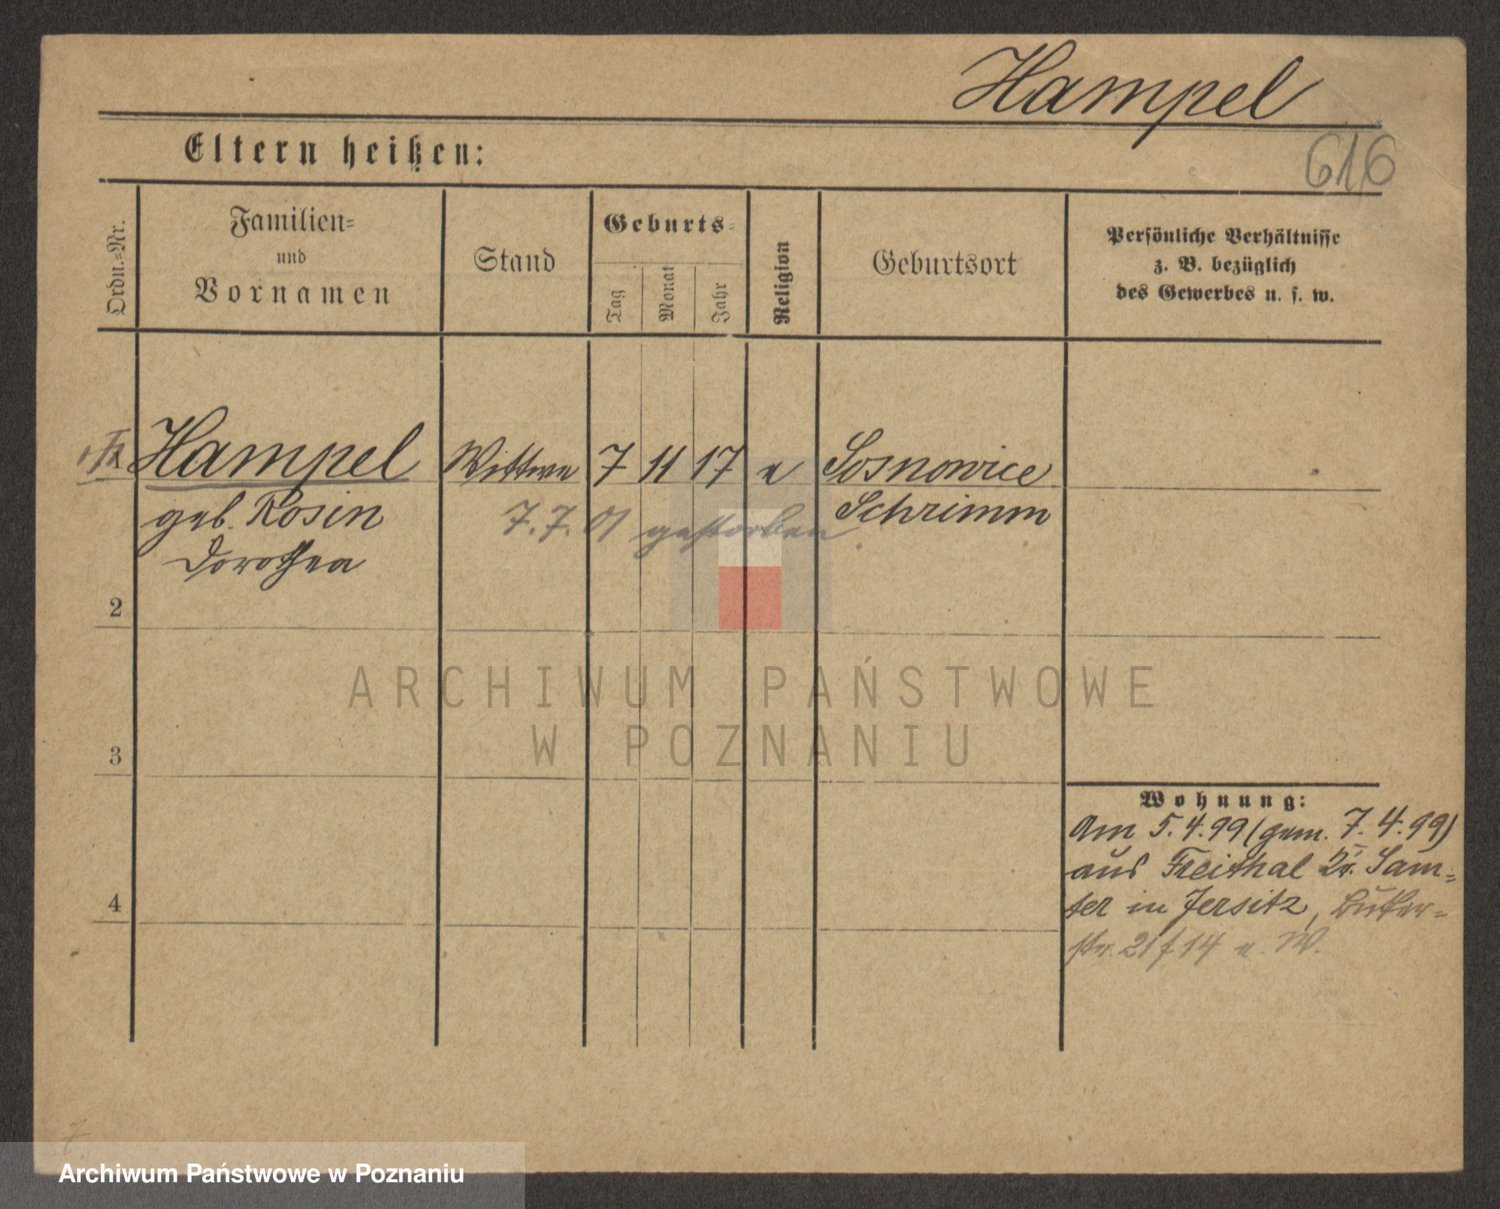 Hampel
616
Eltern heißen:
Ordn.-Nr.
Familien-
und
Vornamen
Stand
Geburts-
Tag
Monat
Jahr
Religion
Geburtsort
Persönliche Verhältnisse
z. B. bezüglich
des Gewerbes u. s. w.
Hampel
geb. Rosin
Dorothea
Wittwe
7
11
17
e
Sosnowice
Schrimm
7.7.01 gestorben
2
3
4
Wohnung:
Am 5.4.99 (gem. 7.4.99)
aus Freithal Kr. Sam-
ter in Jersitz,
str. 21 f 14 u. W.
ARCHIWUM PAŃSTWOWE
W POZNANIU
Archiwum Państwowe w Poznaniu